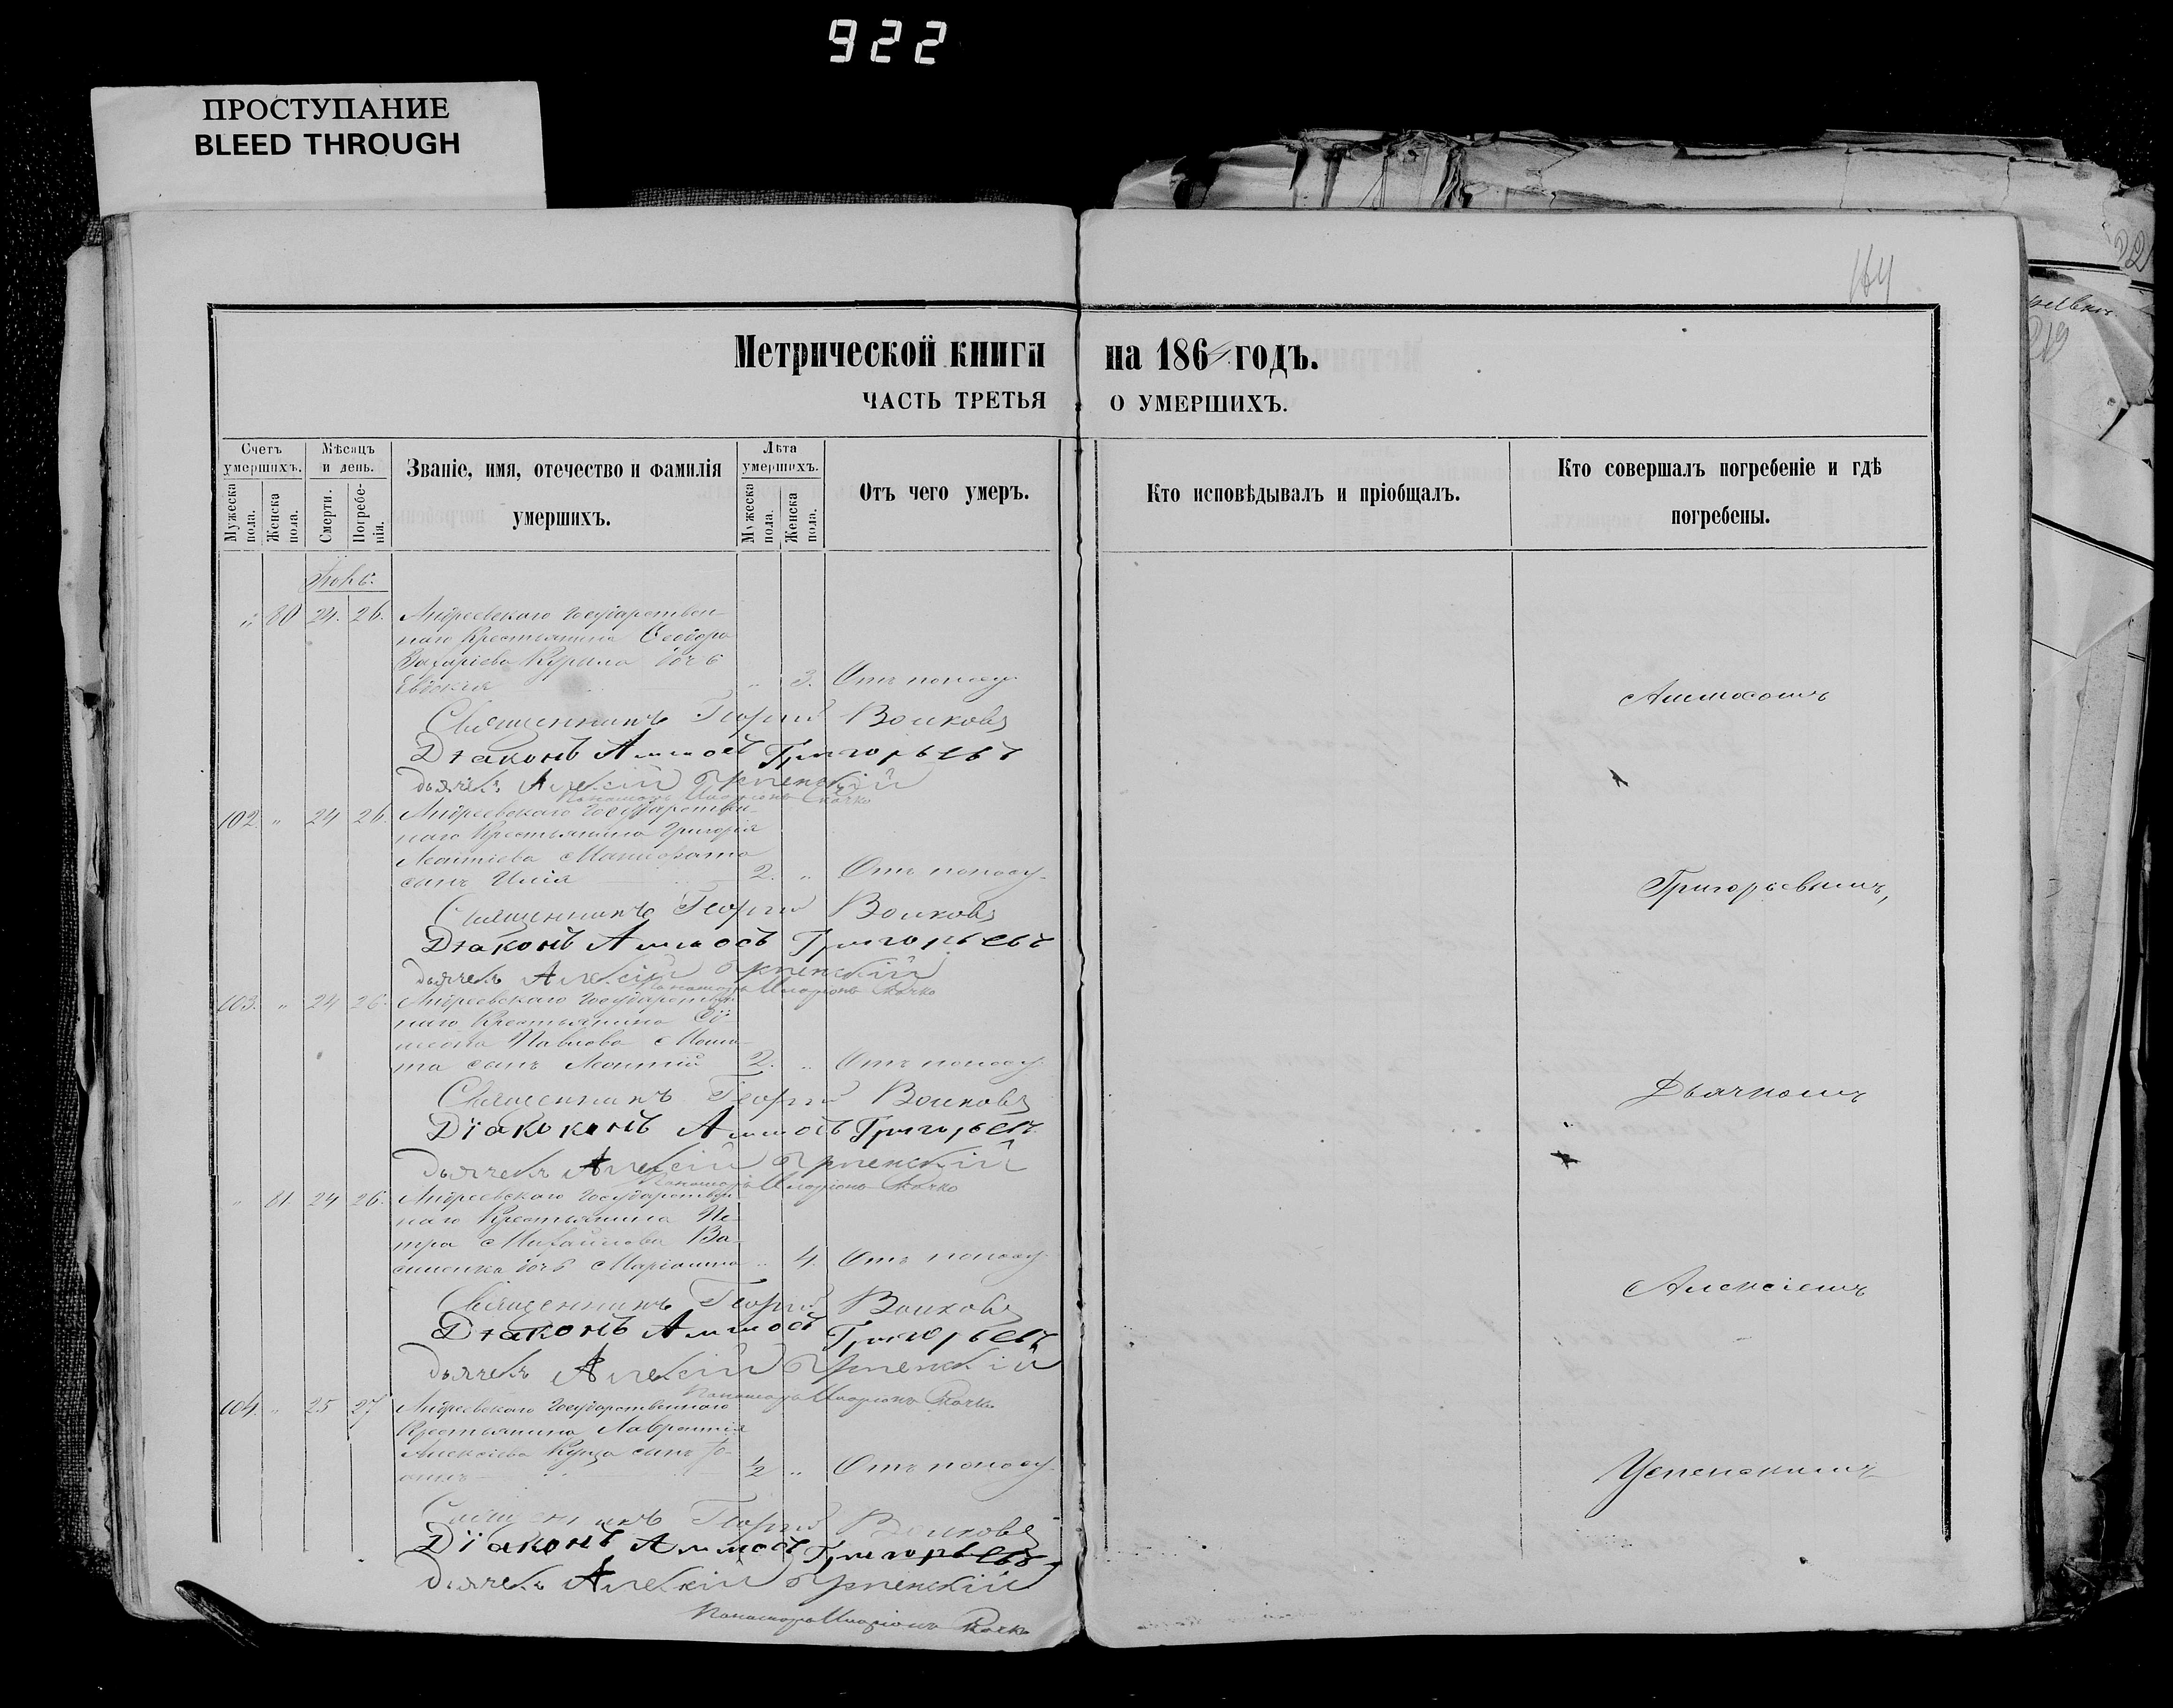 922
ПРОСТУПАНИЕ
BLEED THROUGH
Метрической книги на 1864 годъ.
ЧАСТЬ ТРЕТЬЯ О УМЕРШИХЪ.
Счетъ умершихъ.
Мужеска пола.
Женска пола.
Мѣсяцъ и день.
Смерти.
Погребенія.
Званіе, имя, отечество и фамилія
умершихъ.
Лѣта умершихъ.
Мужеска пола.
Женска пола.
Отъ чего умеръ.
Кто исповѣдывалъ и пріобщалъ.
Кто совершалъ погребеніе и гдѣ
погребены.
„ 80 24. 26. Андреевскаго Государствен-
наго Крестьянина Ѳеодора
Захаріева дочь
Евдокія „ 3. Отъ поносу.
Священникъ Георгій Волковъ
Діаконъ Аммосъ Григорьевъ
Дьячекъ Алексій Успенскій
Пономарь Иларіонъ
102. „ 24 26. Андреевскаго Государствен-
наго Крестьянина Григорія
Леонтіева
сынъ Илія 2. „ Отъ поносу.
Священникъ Георгій Волковъ
Діаконъ Аммосъ Григорьевъ
Дьячекъ Алексій Успенскій
Пономарь Иларіонъ
103. „ 24 26. Андреевскаго Государствен-
наго Крестьянина Сѵ-
меона Павлова
та сынъ Леонтій 2. „ Отъ поносу.
Священникъ Георгій Волковъ
Діаконъ Аммосъ Григорьевъ
Дьячекъ Алексій Успенскій
Пономарь Иларіонъ
„ 81 24 26. Андреевскаго Государствен-
наго Крестьянина Пе-
тра Михайлова Ва-
силенка дочь Маріанна „ 4. Отъ поносу.
Священникъ Георгій Волковъ
Діаконъ Аммосъ Григорьевъ
Дьячекъ Алексій Успенскій
Пономарь Иларіонъ
104. „ 25 27 Андреевскаго Государственнаго
Крестьянина Лаврентія
Алексіева сынъ Іо-
аннъ 1/2 „ Отъ поносу.
Священникъ Георгій Волковъ
Діаконъ Аммосъ Григорьевъ
Дьячекъ Алексій Успенскій
Пономарь Иларіонъ
Аммосомъ
Григорьевымъ,
Дьячкомъ
Алексіемъ
Успенскимъ